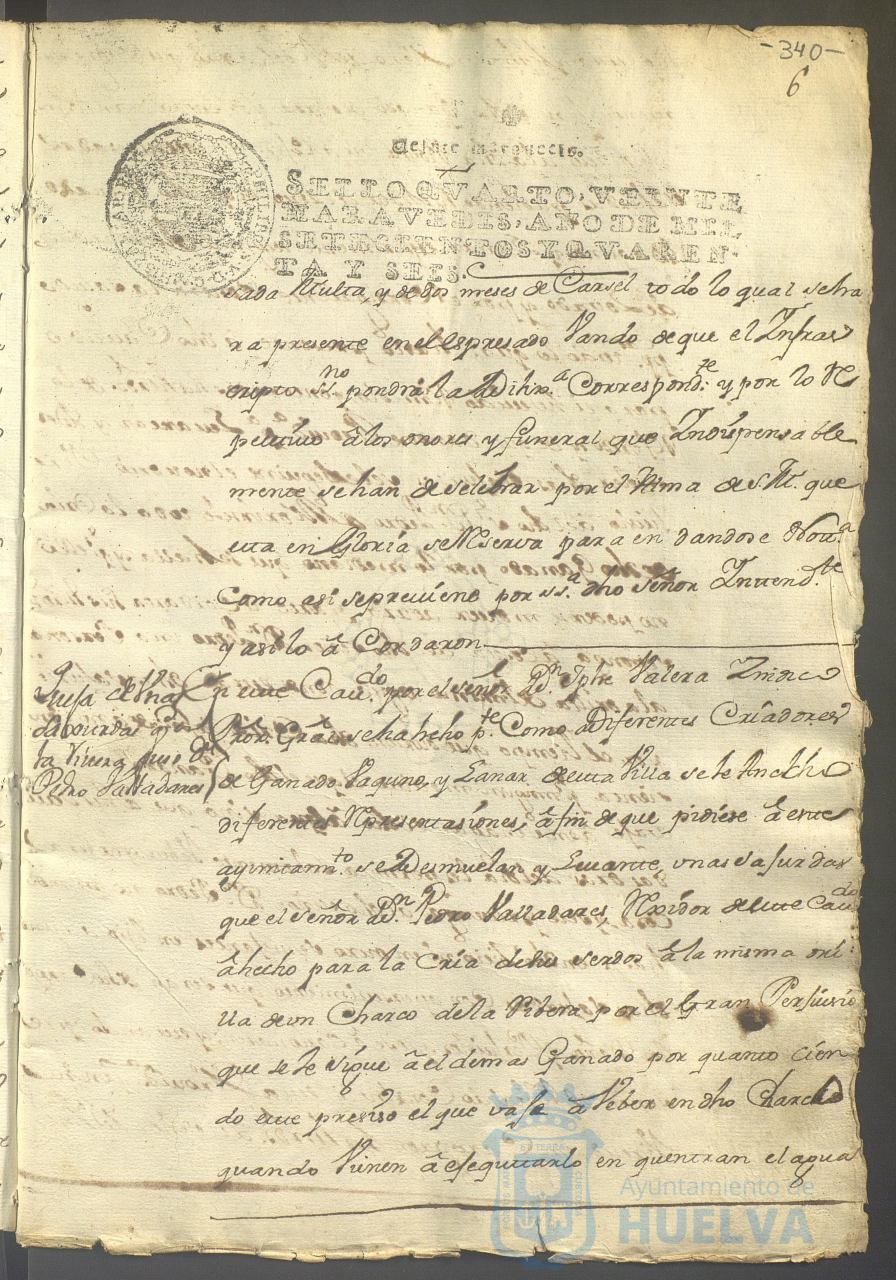 -340-
6
Veinte maravedis.
SELLO QVARTO, VEINTE
MARAVEDIS, AÑO DE MIL
SETECIENTOS Y QVAREN-
TA Y SEIS.
sada Multa, y de dos meses de Carsel todo lo qual seha
ra presente en el espresado Vando de que el Infras
cripto ss.no pondrá la Correspond.te y por lo Re
pectivo â los onores y funeral que Indispensable
mente se han de selebrar por el Alma de S. M. que
esta en Gloria se Reserva para en dandose Notu.a
Como asi se previene por ss.a dho señor Yntend.te
y asi lo â Cordaron
Quesa de Una
sa surdas
ta Rivera puso Dn
Pedro Valladares
En este Cau.do por el señor Dn Jphe Valera Zindico
Pror. Gral se ha hecho p.te Como â Diferentes Criadores
de Ganado Vaguno, y Lanar de esta Villa se le An echo
diferentes Representasiones, â fin de que pidiese â este
ayuntamto se Desmuelan y Levante, unas sasurdas
que el señor Dn Pedro Valladares, Rexidor de este Caudo
â hecho para la Cria de sus serdos â la misma ori
lla de un Charco de la Ribera por el Gran Persuisio
que se le sigue â el demas Ganado por quanto cien
do este presiso el que vase â Veber en dho Charco
quando Vienen â esequttarlo en quentran el agua
Ayuntamiento de
HUELVA